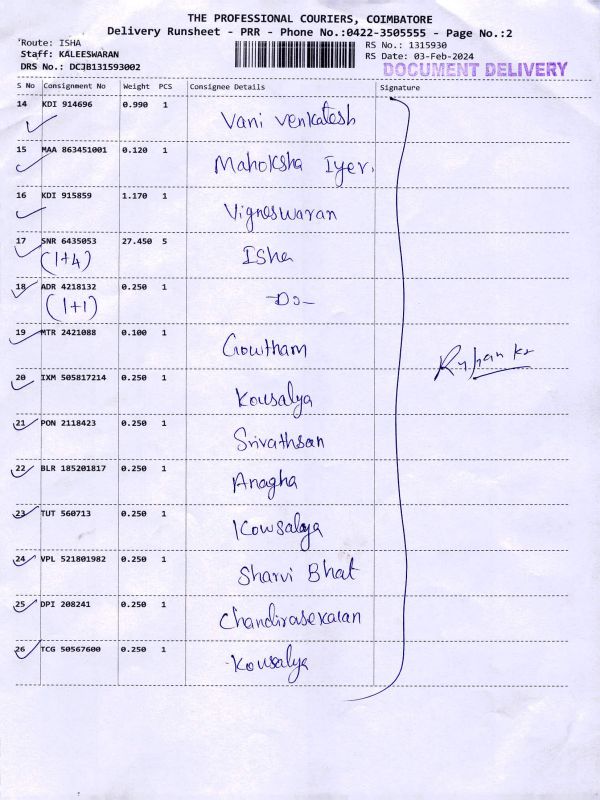 THE PROFESSIONAL COURIERS, COIMBATORE
Delivery Runsheet - PRR - Phone No.:0422-3505555 - Page No.:2
Route: ISHA
Staff: KALEESWARAN
DRS No.: DCJB131593002
RS No.: 1315930
RS Date: 03-Feb-2024
DOCUMENT DELIVERY
S No Consignment No Weight PCS Consignee Details Signature
14 KDI 914696 0.990 1 Vani Venkatesh
15 MAA 863451001 0.120 1 Mahoksha Iyer.
16 KDI 915859 1.170 1 Vigneswaran
17 SNR 6435053 27.450 5 Isha
(1+4)
18 ADR 4218132 0.250 1 -Do-
(1+1)
19 MTR 2421088 0.100 1 Gowtham
20 IXM 505817214 0.250 1 Kousalya
21 PON 2118423 0.250 1 Srivathsan
22 BLR 185201817 0.250 1 Anagha
23 TUT 560713 0.250 1 Kowsalya
24 VPL 521801982 0.250 1 Sharvi Bhat
25 DPI 208241 0.250 1 Chandirasekaran
26 TCG 50567600 0.250 1 Kousalya